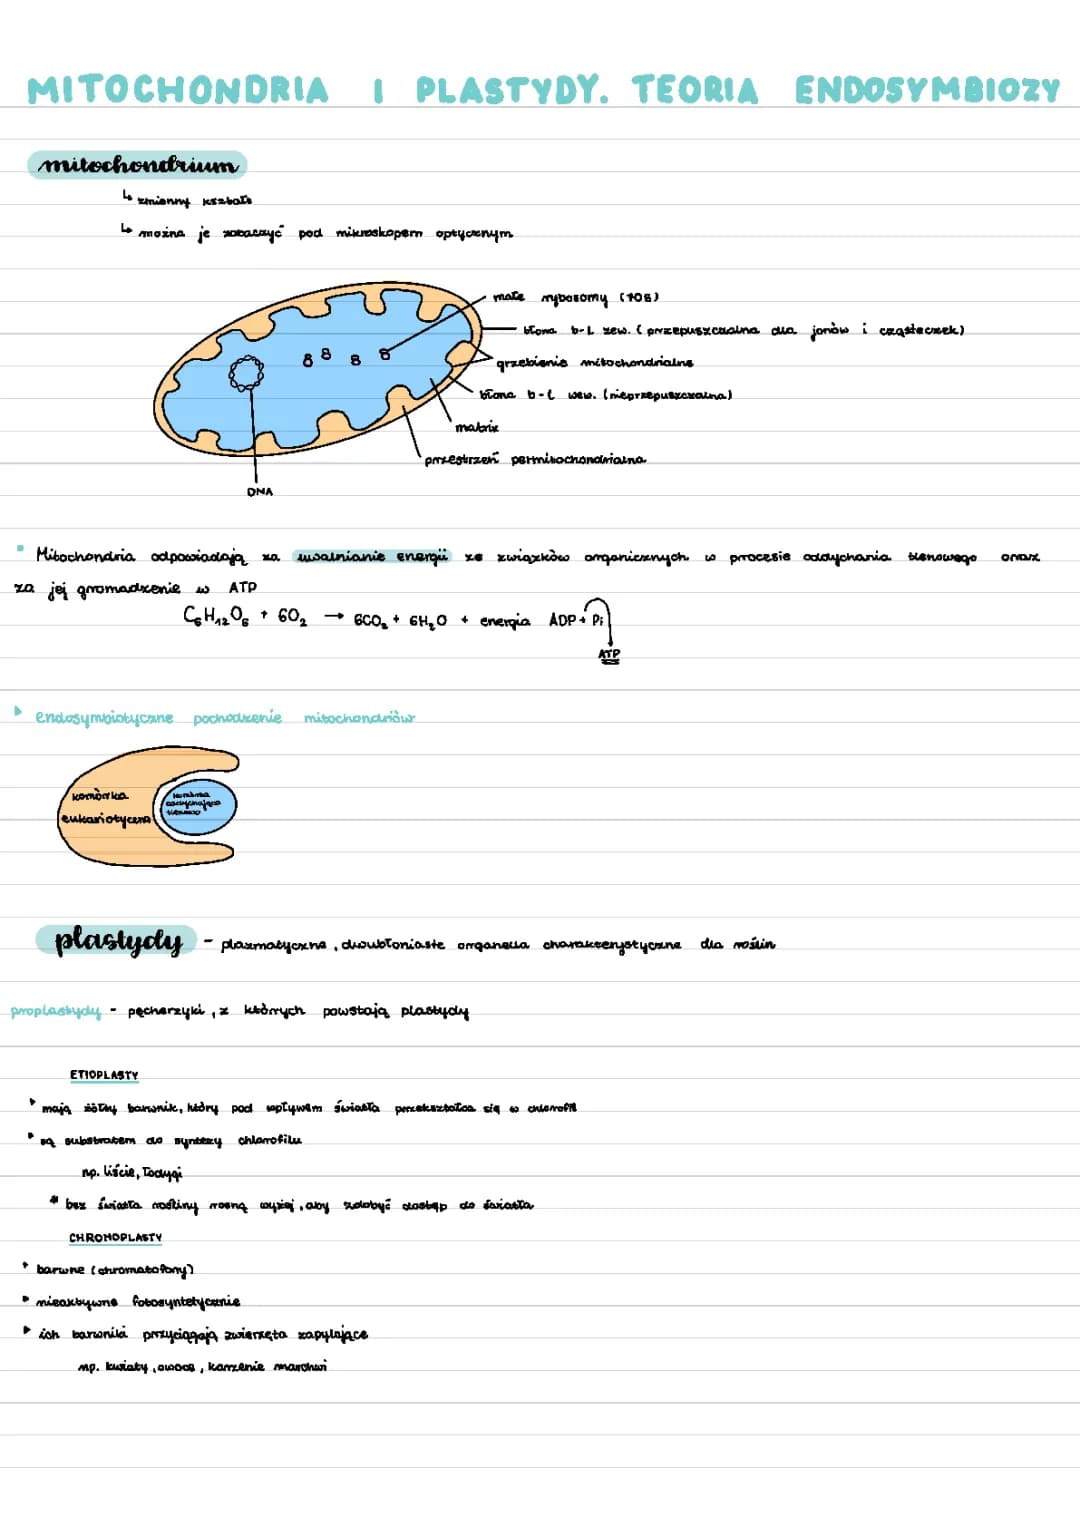 MITOCHONDRIA I PLASTYDY. TEORIA ENDOSYMBIOZY
mitochondrium
↳ zmienny kształt
↳ można je zobaczyć pod mikroskopem optycznym
małe rybosomy (70S)
błona b-ł zew. (przepuszczalna dla jonów i cząsteczek)
grzebienie mitochondrialne
błona b-ł wew. (nieprzepuszczalna)
matrix
przestrzeń perimitochondrialna
DNA
Mitochondria odpowiadają za uwalnianie energii ze związków organicznych w procesie oddychania tlenowego oraz
za jej gromadzenie w ATP
C₆H₁₂O₆ + 6O₂ → 6CO₂ + 6H₂O + energia ADP + Pi
ATP
endosymbiotyczne pochodzenie mitochondriów
komórka
eukariotyczna
komórka
oddychająca
tlenowo
plastydy - plazmatyczne, dwubłoniaste organella charakterystyczne dla roślin
proplastydy - pęcherzyki, z których powstają plastydy
ETIOPLASTY
mają żółty barwnik, który pod wpływem światła przekształca się w chlorofil
są substratem do syntezy chlorofilu
np. liście, łodygi
* bez światła rośliny rosną wyżej, aby zdobyć dostęp do światła
CHROMOPLASTY
barwne (chromatofony)
nieaktywne fotosyntetycznie
ich barwniki przyciągają zwierzęta zapylające
np. kwiaty, owoce, korzenie marchwi